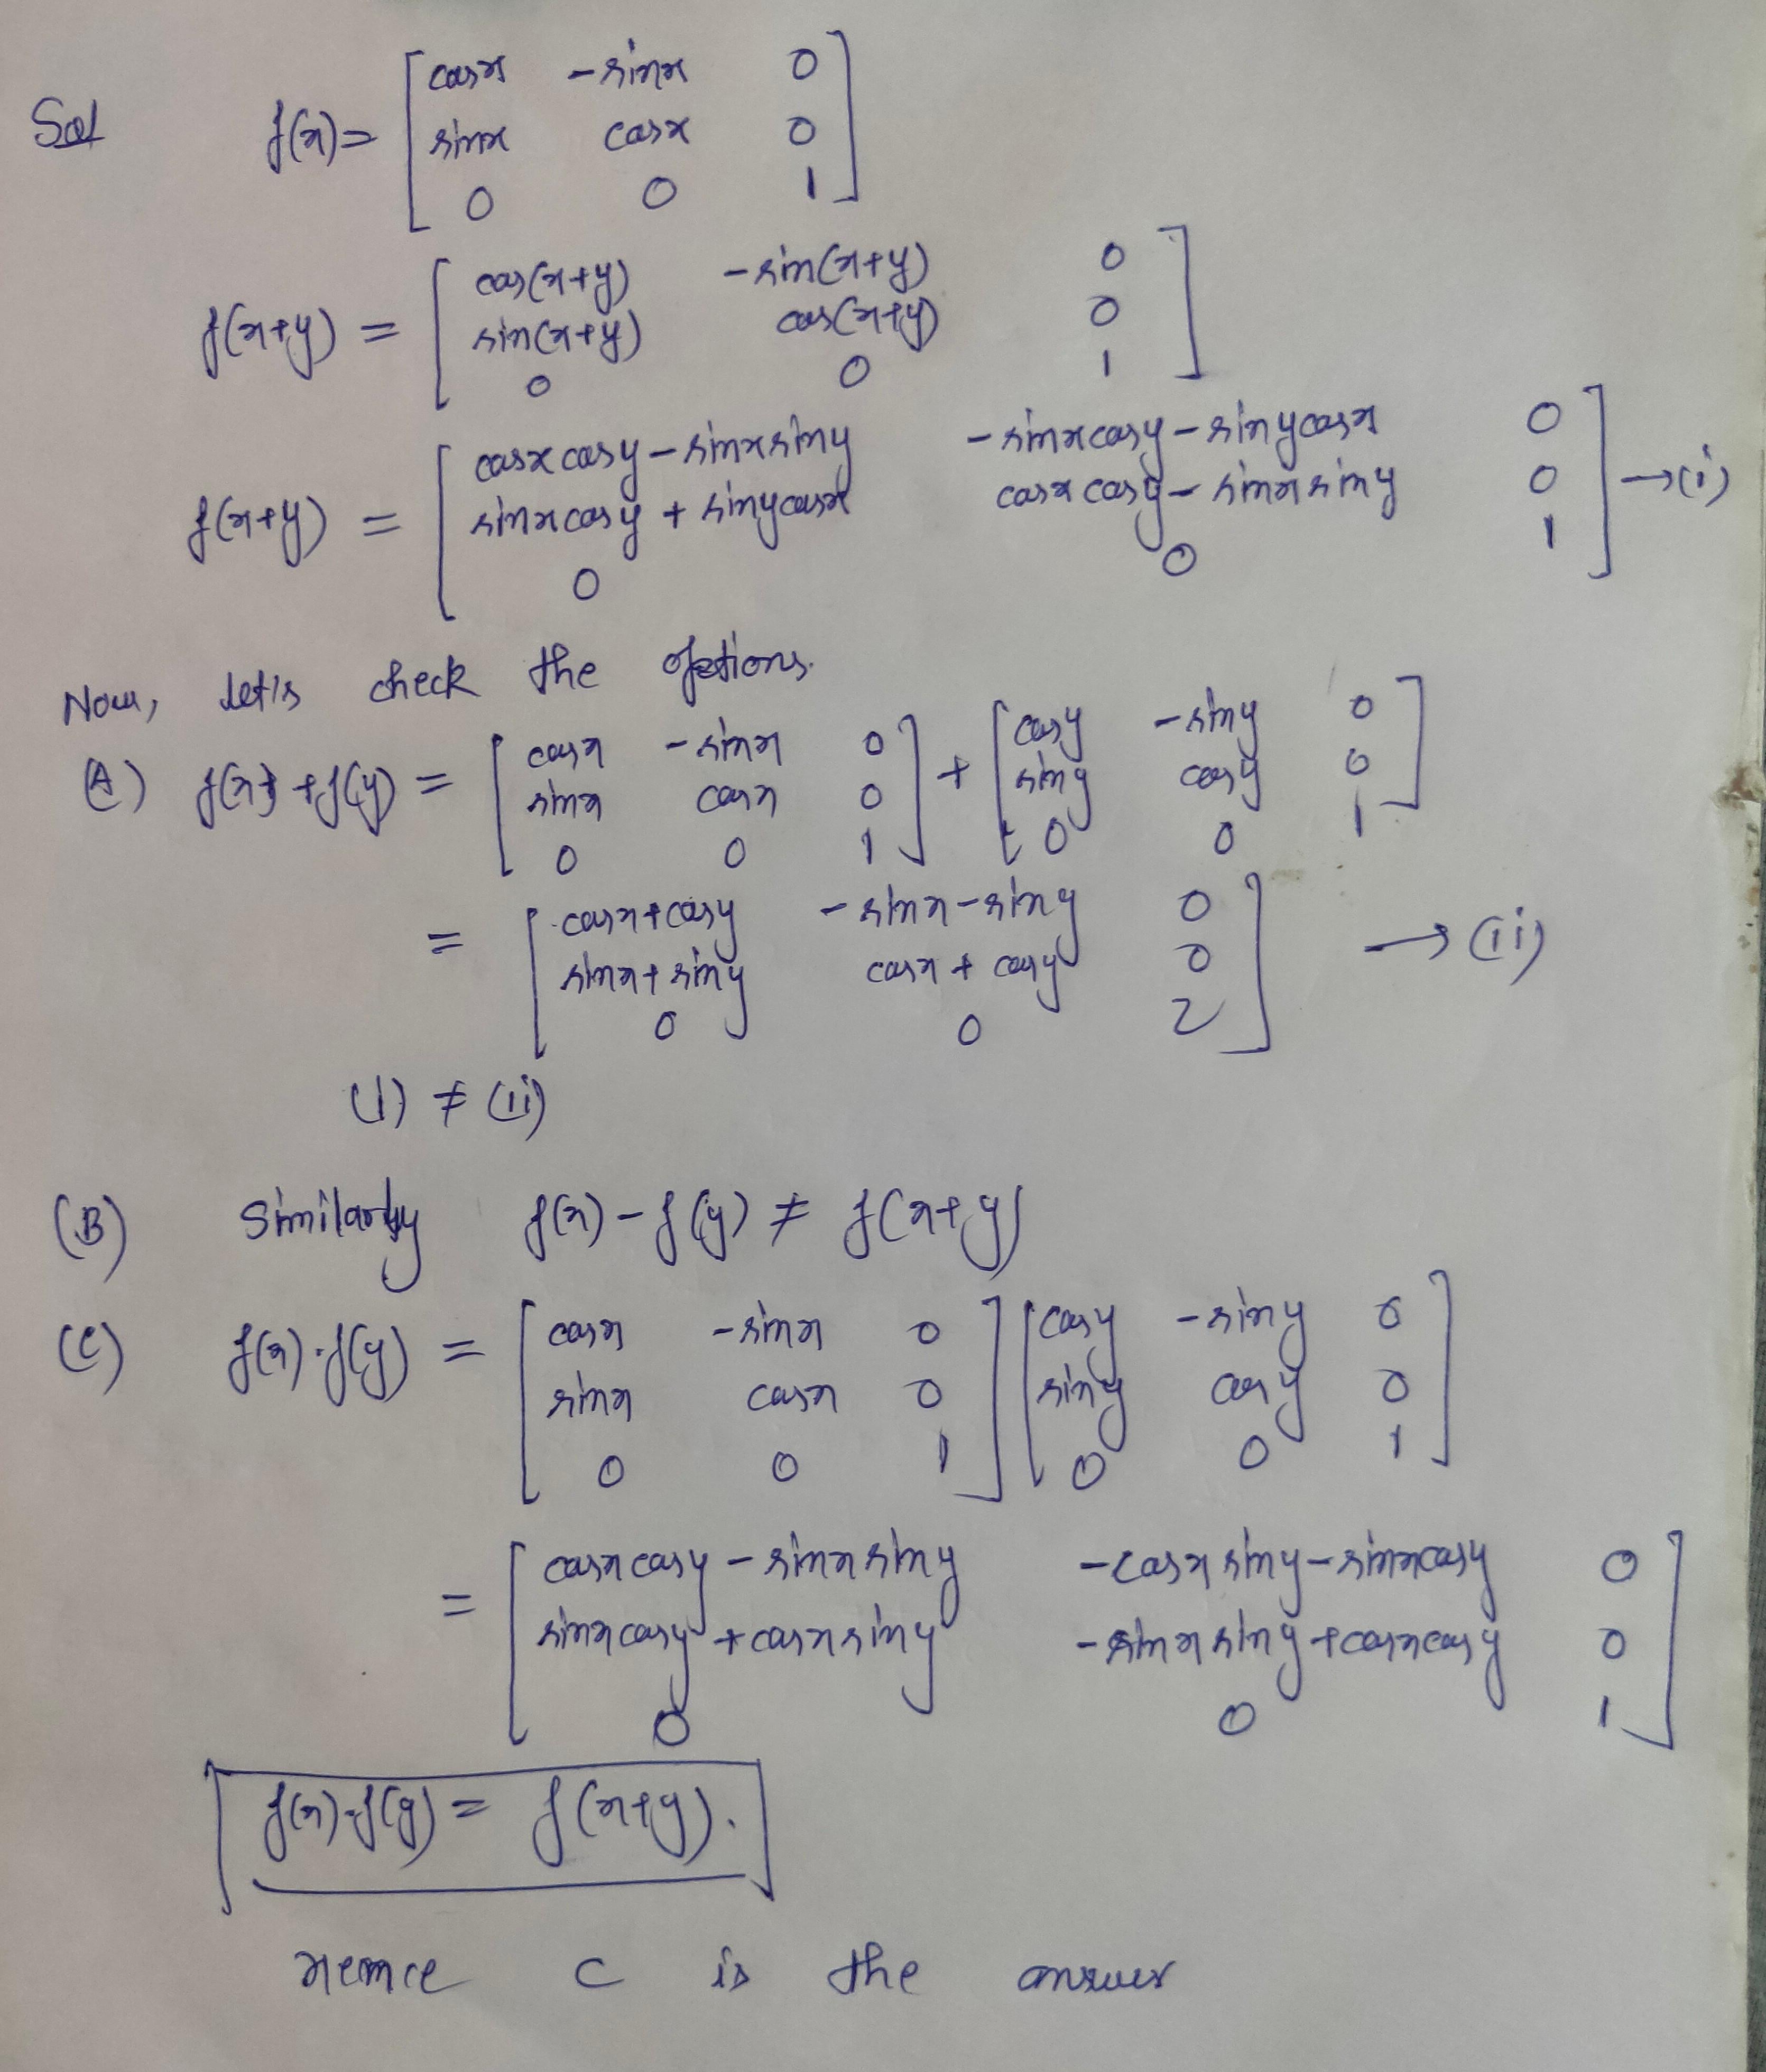 Sol f(x) = [ cosx -sinx 0
sinx cosx 0
0 0 1 ]
f(x+y) = [ cos(x+y) -sin(x+y) 0
sin(x+y) cos(x+y) 0
0 0 1 ]
f(x+y) = [ cosx cosy - sinx siny -sinx cosy - siny cosx 0
sinx cosy + siny cosx cosx cosy - sinx siny 0
0 0 1 ] → (i)
Now, let's check the options.
(A) f(x) + f(y) = [ cosx -sinx 0
sinx cosx 0
0 0 1 ] + [ cosy -siny 0
siny cosy 0
0 0 1 ]
= [ cosx + cosy -sinx - siny 0
sinx + siny cosx + cosy 0
0 0 2 ] → (ii)
(i) ≠ (ii)
(B) Similarly f(x) - f(y) ≠ f(x+y)
(C) f(x)·f(y) = [ cosx -sinx 0
sinx cosx 0
0 0 1 ] [ cosy -siny 0
siny cosy 0
0 0 1 ]
= [ cosx cosy - sinx siny -cosx siny - sinx cosy 0
sinx cosy + cosx siny -sinx siny + cosx cosy 0
0 0 1 ]
f(x)·f(y) = f(x+y).
Hence C is the answer